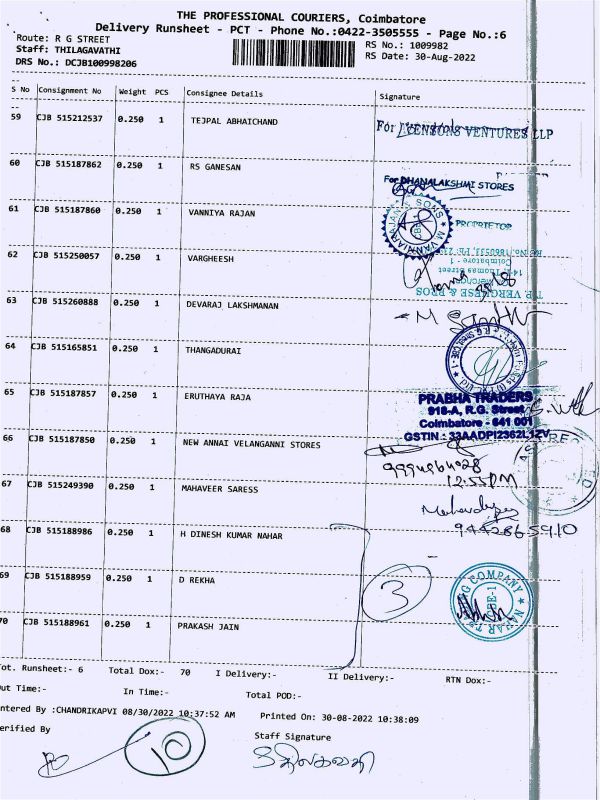 THE PROFESSIONAL COURIERS, Coimbatore
Delivery Runsheet - PCT - Phone No.:0422-3505555 - Page No.:6
Route: R G STREET
RS No.: 1009982
Staff: THILAGAVATHI
RS Date: 30-Aug-2022
DRS No.: DCJB100998206
S No Consignment No Weight PCS Consignee Details Signature
59 CJB 515212537 0.250 1 TEJPAL ABHAICHAND
For VENSONS VENTURES LLP
60 CJB 515187862 0.250 1 RS GANESAN
For DHANALAKSHMI STORES
61 CJB 515187860 0.250 1 VANNIYA RAJAN
PROPRIETOR
62 CJB 515250057 0.250 1 VARGHEESH
Thomas Street
Coimbatore - 1
63 CJB 515260888 0.250 1 DEVARAJ LAKSHMANAN
64 CJB 515165851 0.250 1 THANGADURAI
65 CJB 515187857 0.250 1 ERUTHAYA RAJA
PRABHA TRADERS
918-A, R.G. Street
Coimbatore - 641 001
GSTIN : 33AADPI2362L1ZV
66 CJB 515187850 0.250 1 NEW ANNAI VELANGANNI STORES
12:55PM
67 CJB 515249390 0.250 1 MAHAVEER SARESS
9442865910
68 CJB 515188986 0.250 1 H DINESH KUMAR NAHAR
69 CJB 515188959 0.250 1 D REKHA
3
70 CJB 515188961 0.250 1 PRAKASH JAIN
Tot. Runsheet:- 6 Total Dox:- 70 I Delivery:- II Delivery:- RTN Dox:-
Out Time:- In Time:- Total POD:-
ntered By :CHANDRIKAPVI 08/30/2022 10:37:52 AM Printed On: 30-08-2022 10:38:09
erified By
Staff Signature
10
திலகவதி